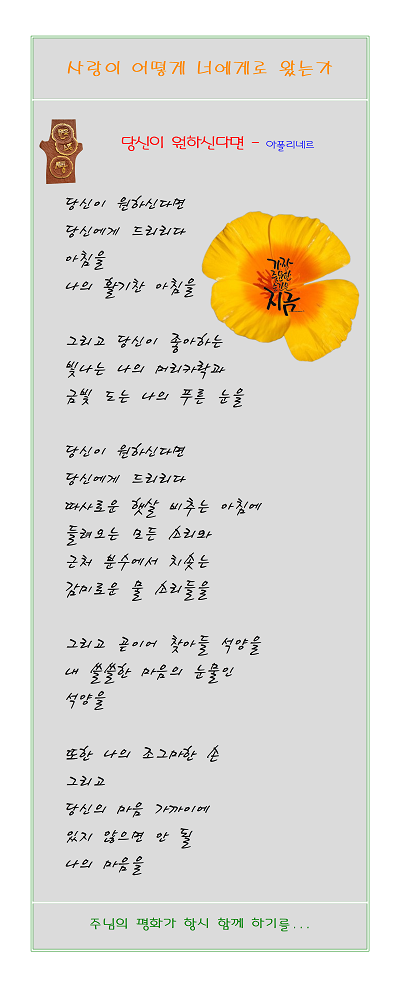 사랑이 어떻게 너에게로 왔는가
당신이 원하신다면 - 아폴리네르
당신이 원하신다면
당신에게 드리리다
아침을
나의 활기찬 아침을
가장
중요한
순간은
지금
그리고 당신이 좋아하는
빛나는 나의 머리카락과
금빛 도는 나의 푸른 눈을
당신이 원하신다면
당신에게 드리리다
따사로운 햇살 비추는 아침에
들려오는 모든 소리와
근처 분수에서 치솟는
감미로운 물 소리들을
그리고 끈이어 찾아들 석양을
내 쓸쓸한 마음의 눈물인
석양을
또한 나의 조그마한 손
그리고
당신의 마음 가까이에
있지 않으면 안 될
나의 마음을
주님의 평화가 항시 함께 하기를...